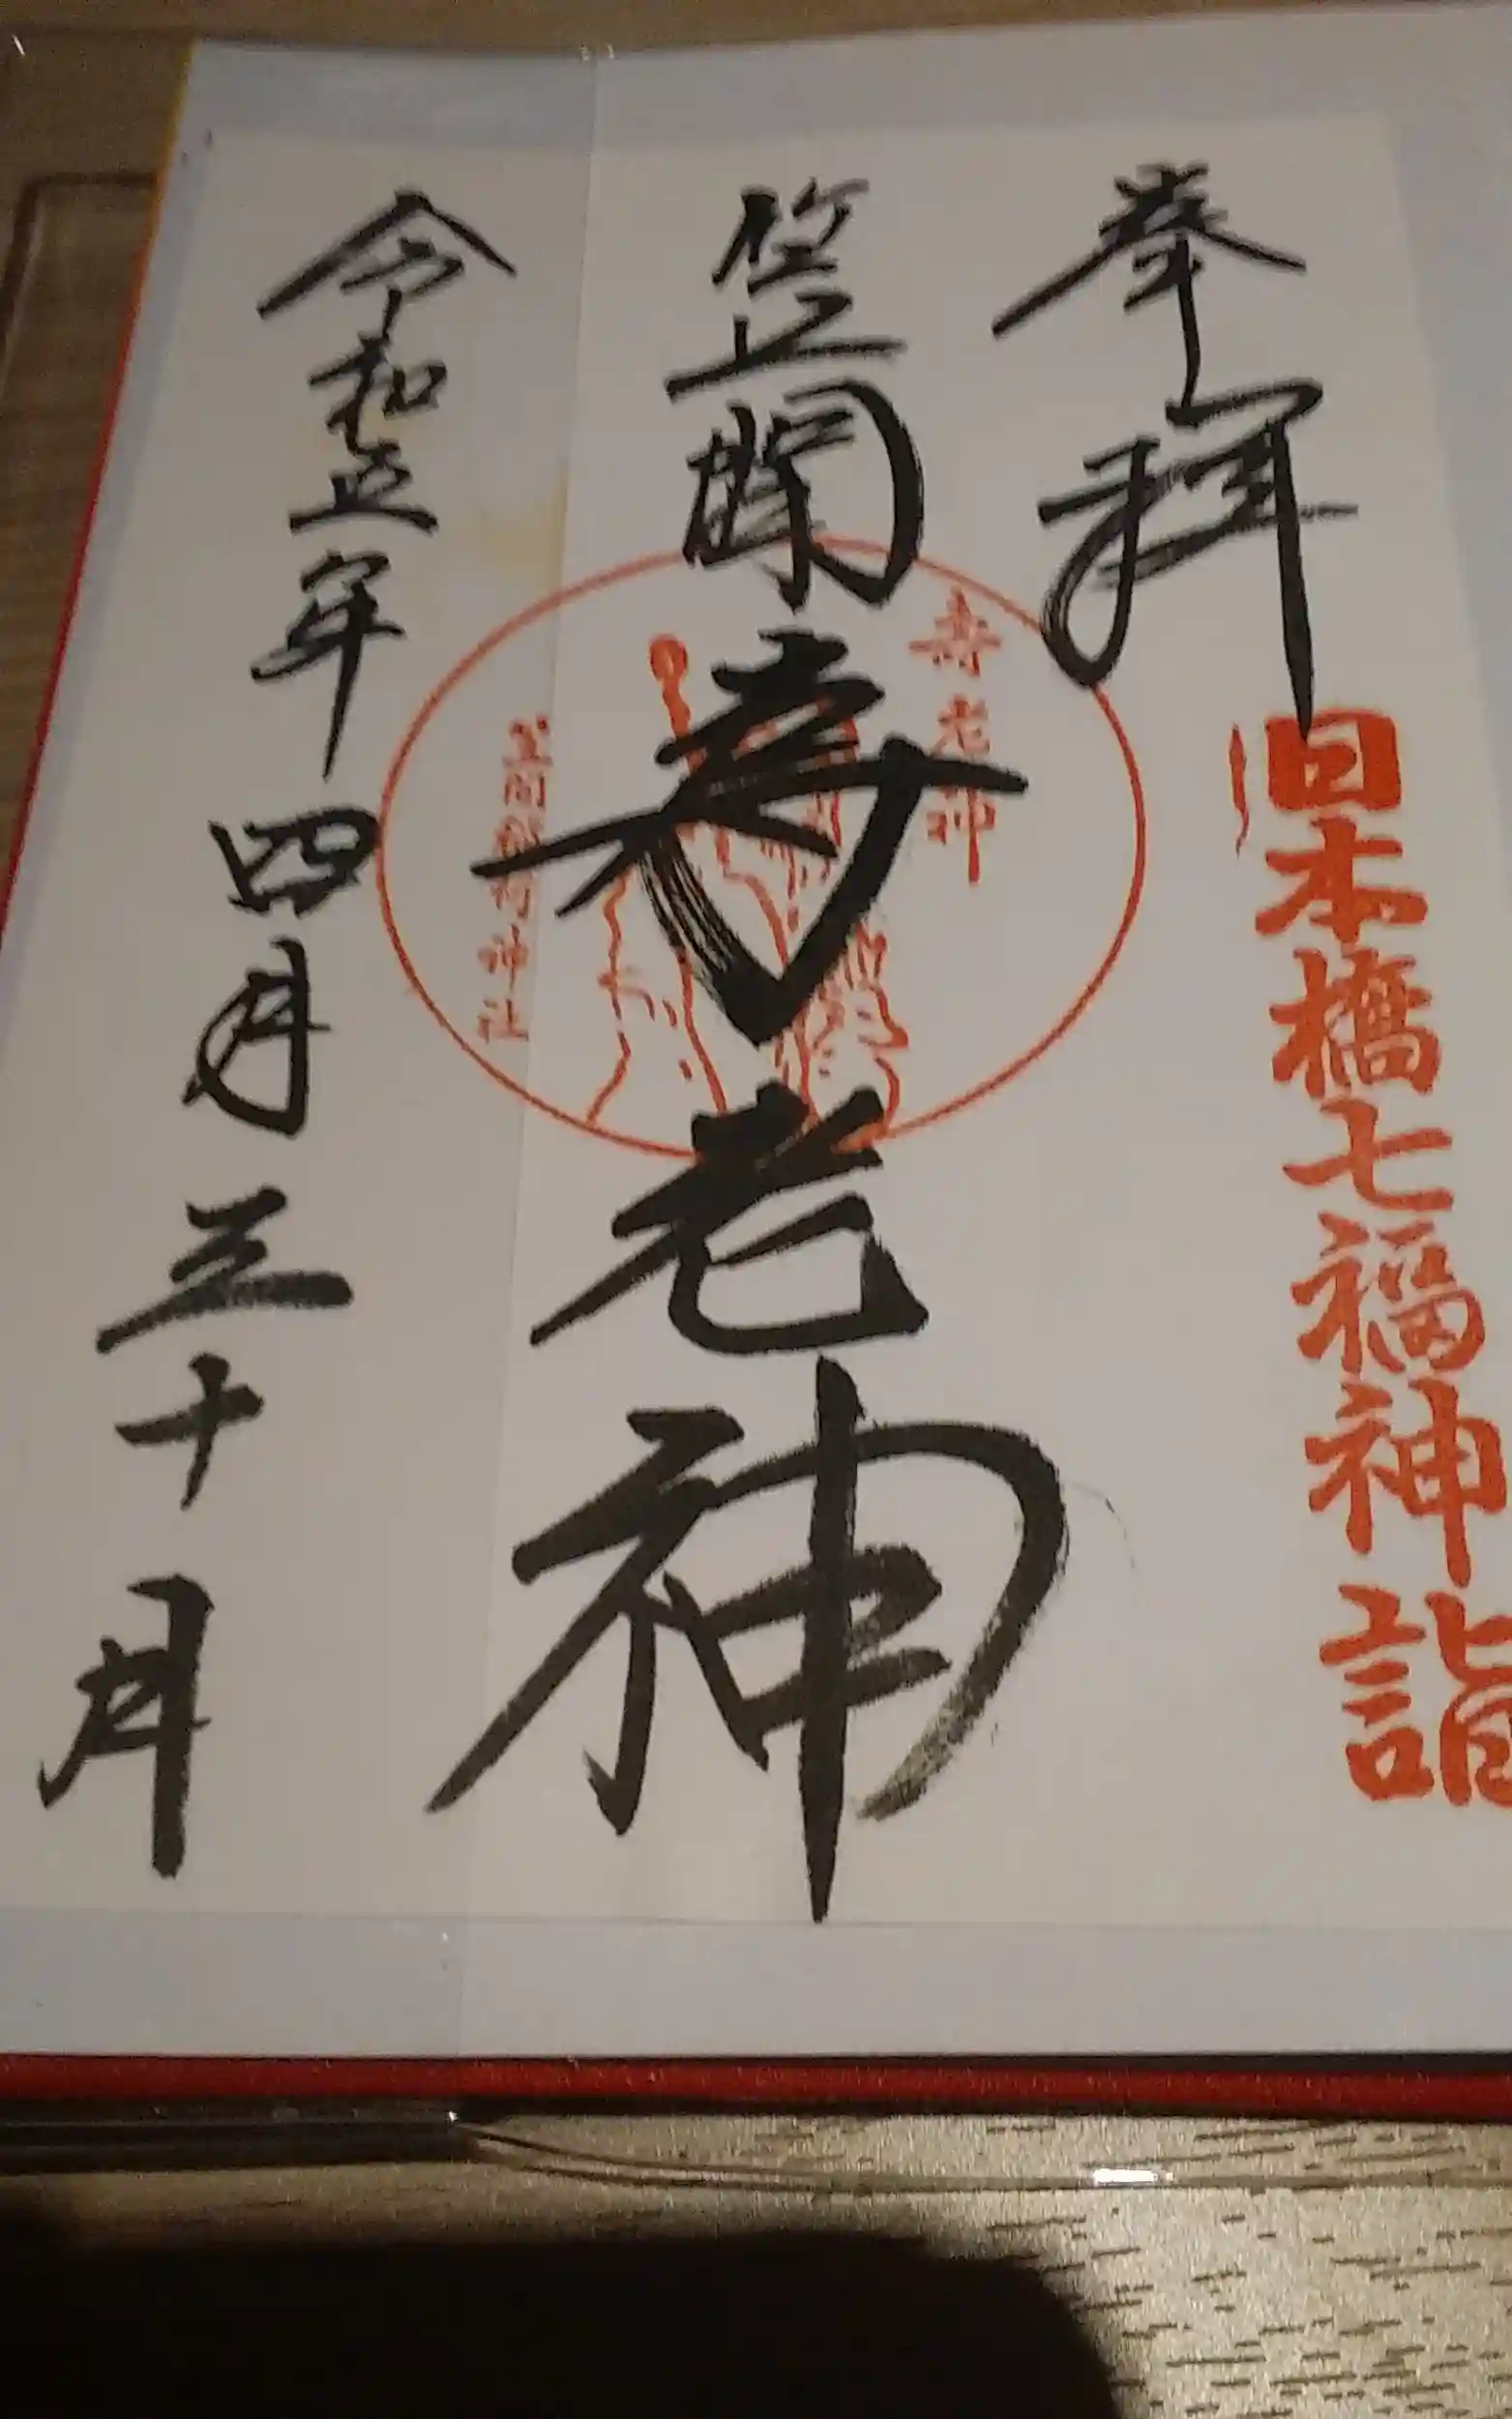 奉拝
日本橋七福神詣
笠間寿老神
寿老神
笠間稲荷神社
令和五年四月三十日